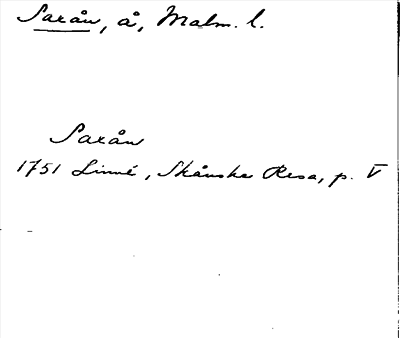 Saxån, å, Malm. l.
Saxån
1751 Linné, Skånska Resa, p. V